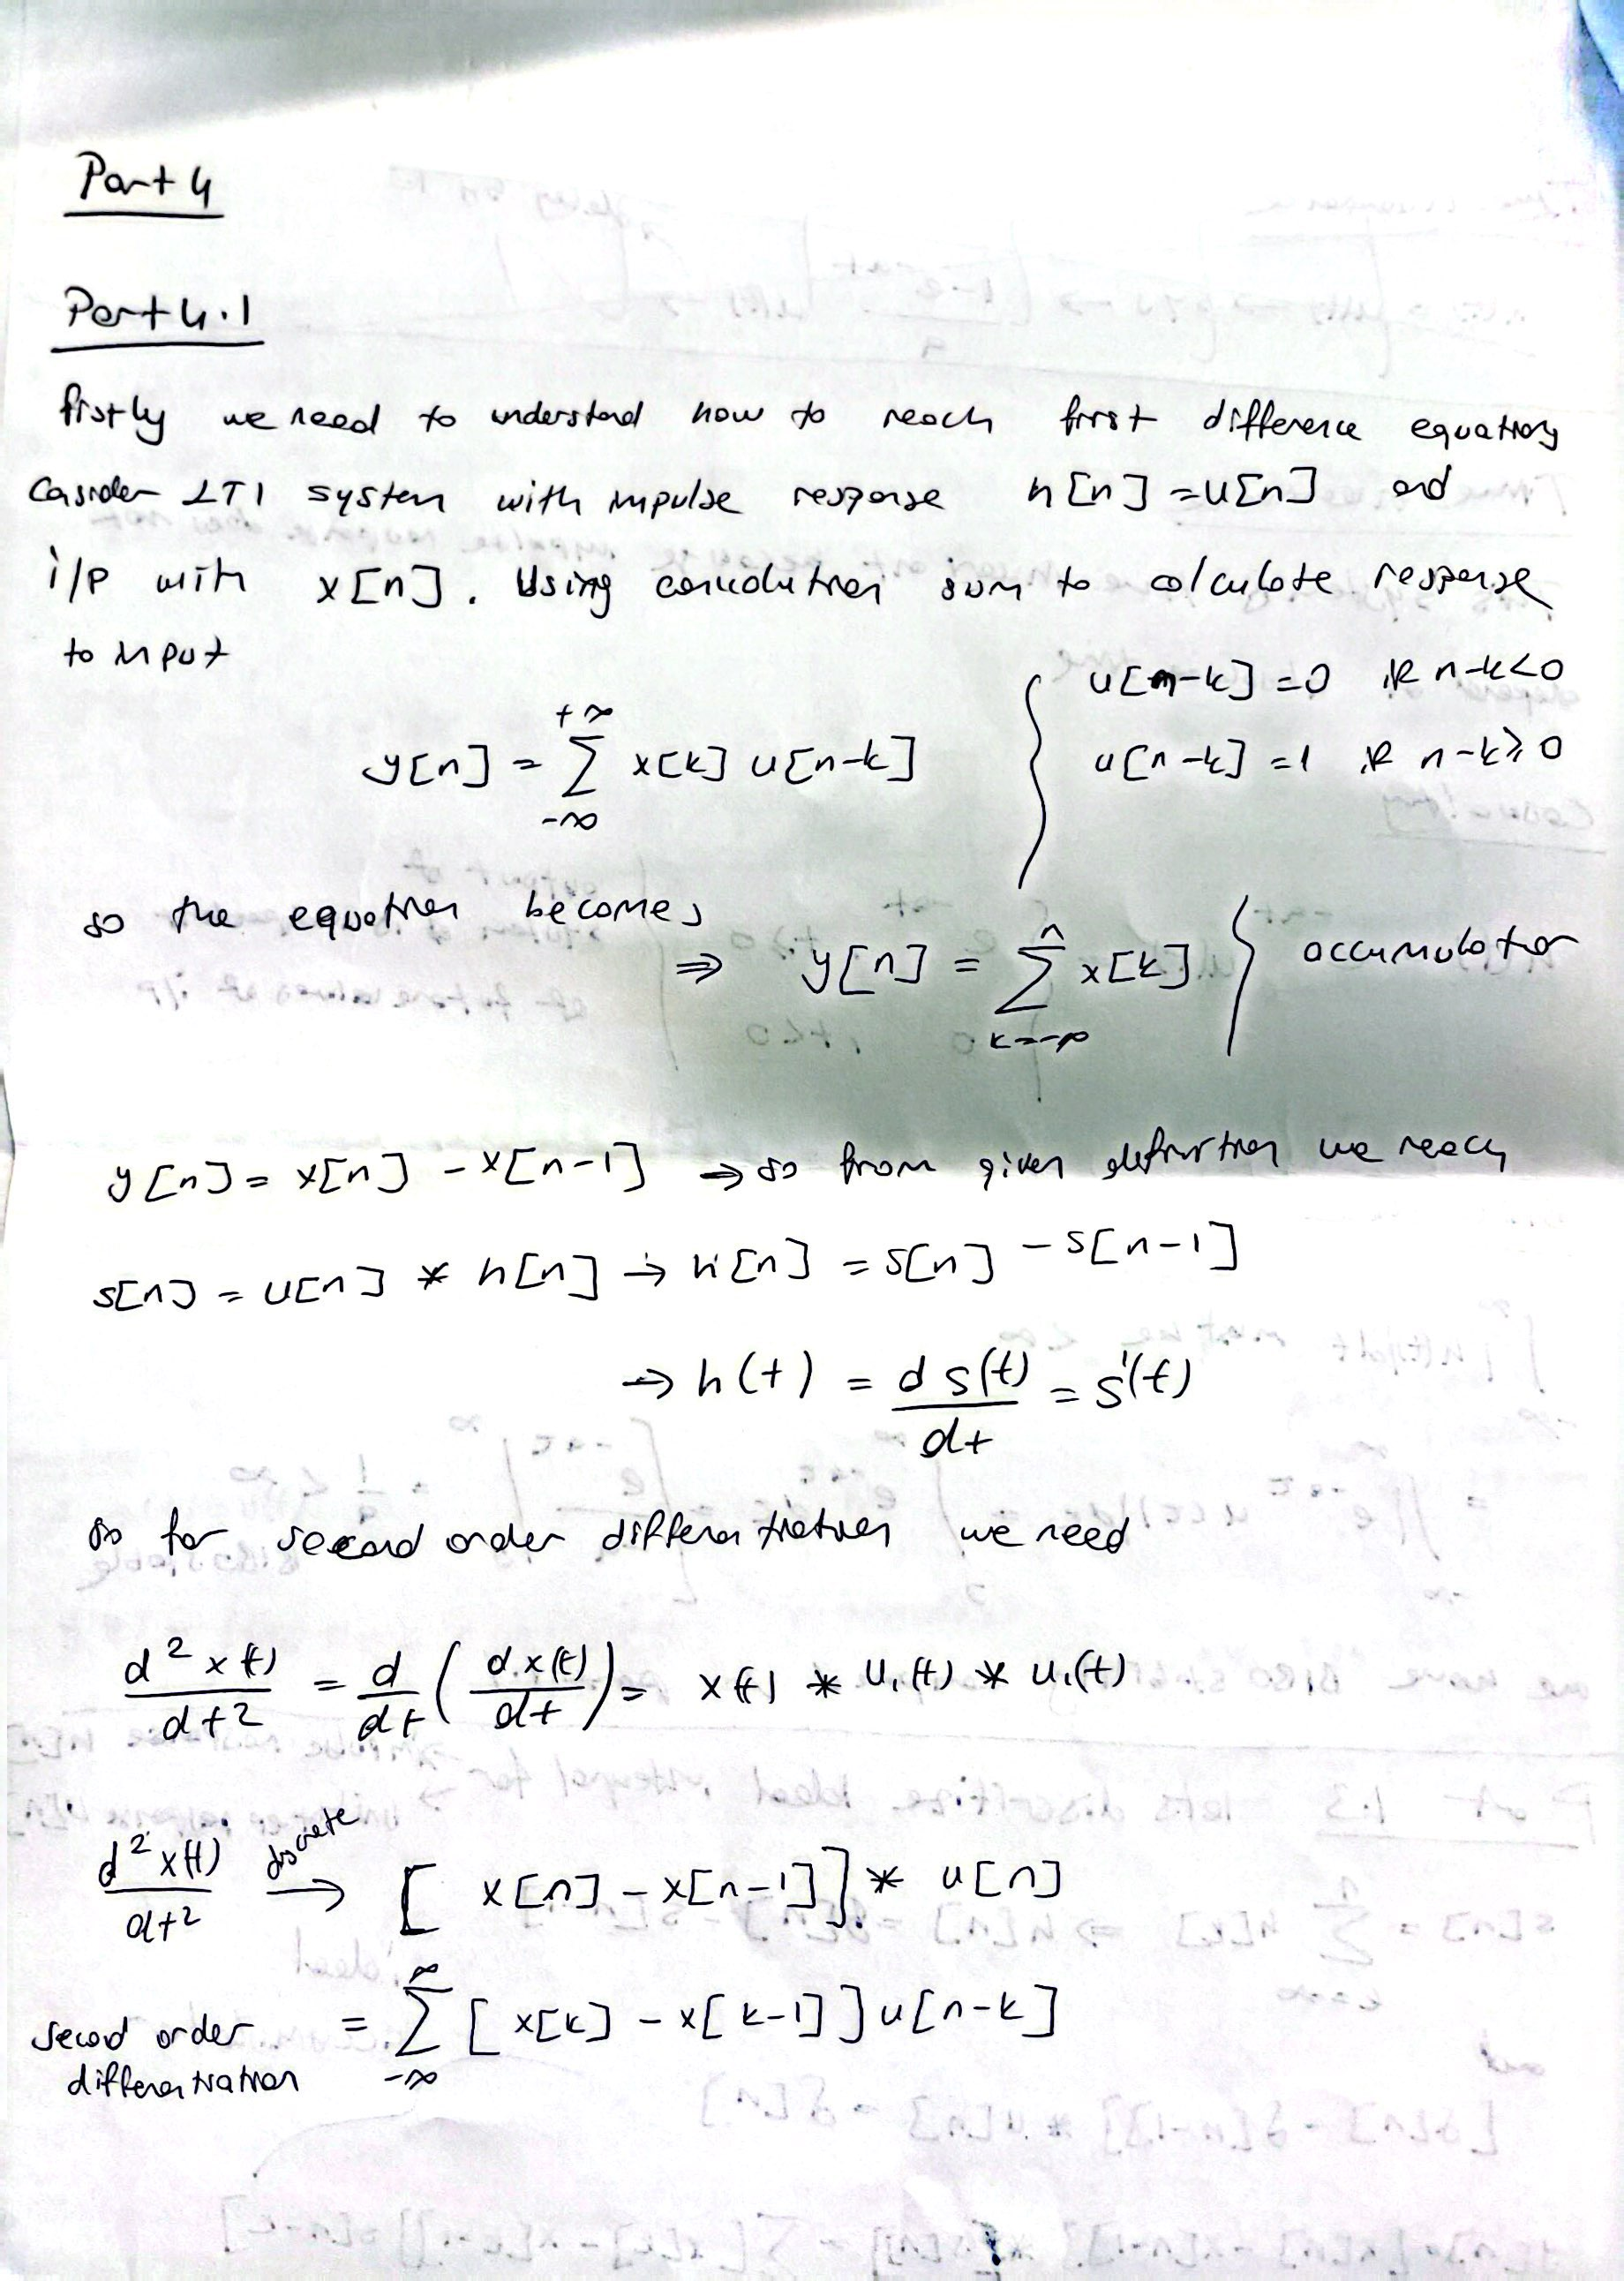 Part 4
Part 4.1
firstly we need to understand how to reach first difference equation
Consider LTI system with impulse response h[n] = u[n] and
i/p with x[n]. Using convolution sum to calculate response
to input
y[n] = Σ_{-∞}^{+∞} x[k] u[n-k] { u[n-k] = 0 if n-k<0
u[n-k] = 1 if n-k≥0
so the equation becomes
⇒ y[n] = Σ_{k=-∞}^{n} x[k] } accumulator
y[n] = x[n] - x[n-1] → so from given definition we reach
s[n] = u[n] * h[n] → h[n] = s[n] - s[n-1]
→ h(t) = d s(t)/dt = s'(t)
so for second order differentiation we need
d²x(t)/dt² = d/dt (d x(t)/dt) = x(t) * u₁(t) * u₁(t)
d²x(t)/dt² discrete → [ x[n] - x[n-1]] * u[n]
second order differentiation = Σ_{-∞}^{∞} [ x[k] - x[k-1]] u[n-k]